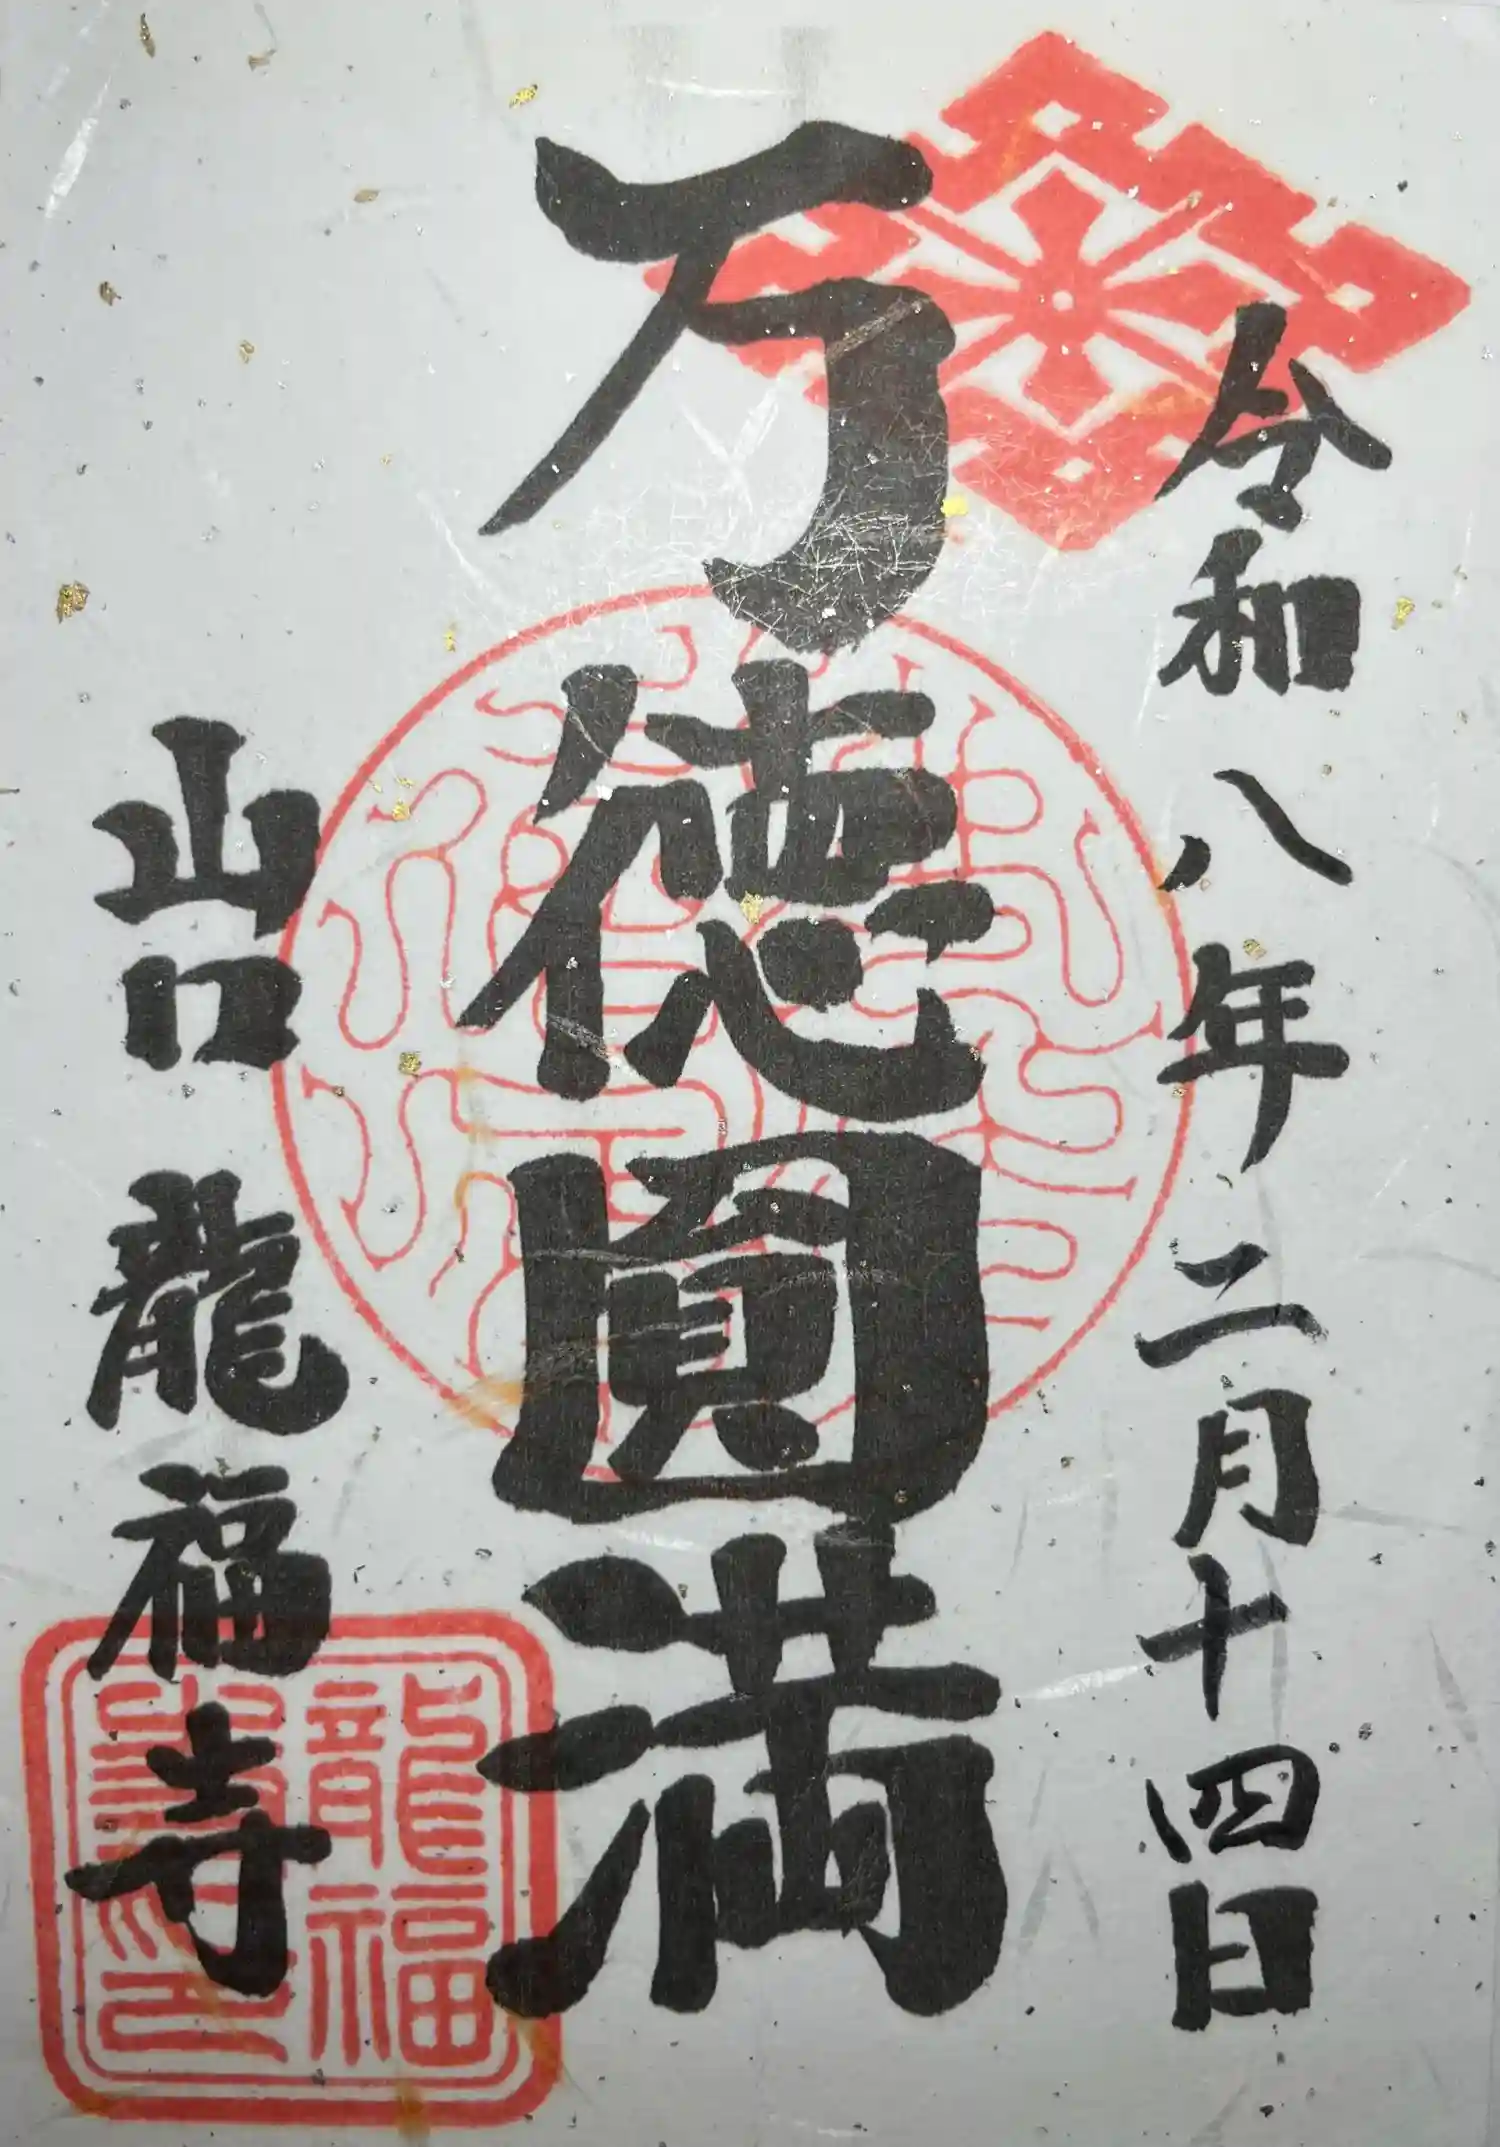 令和八年二月十四日
万徳圓満
山口 龍福寺
龍福
寺印